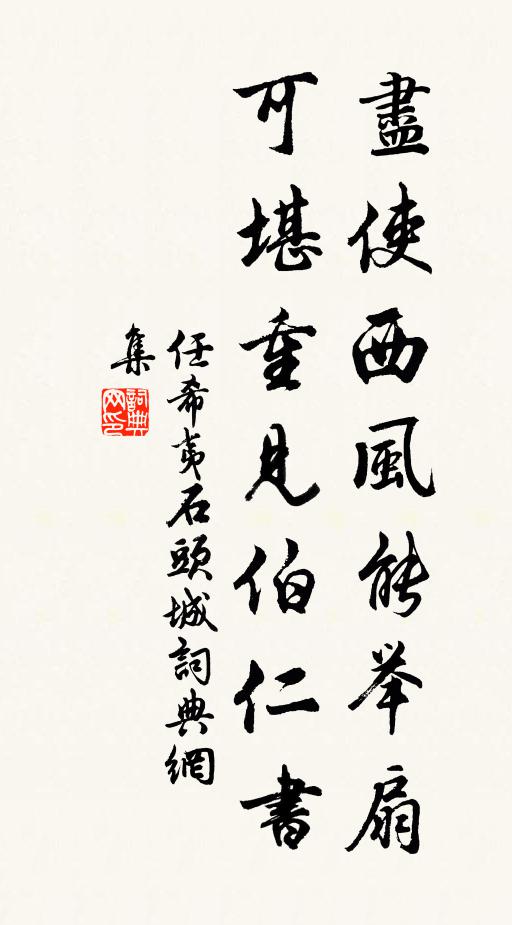 盡使西風能举扇
可堪重見伯仁書
任希夷石頭城詞典網
集
詞典网印